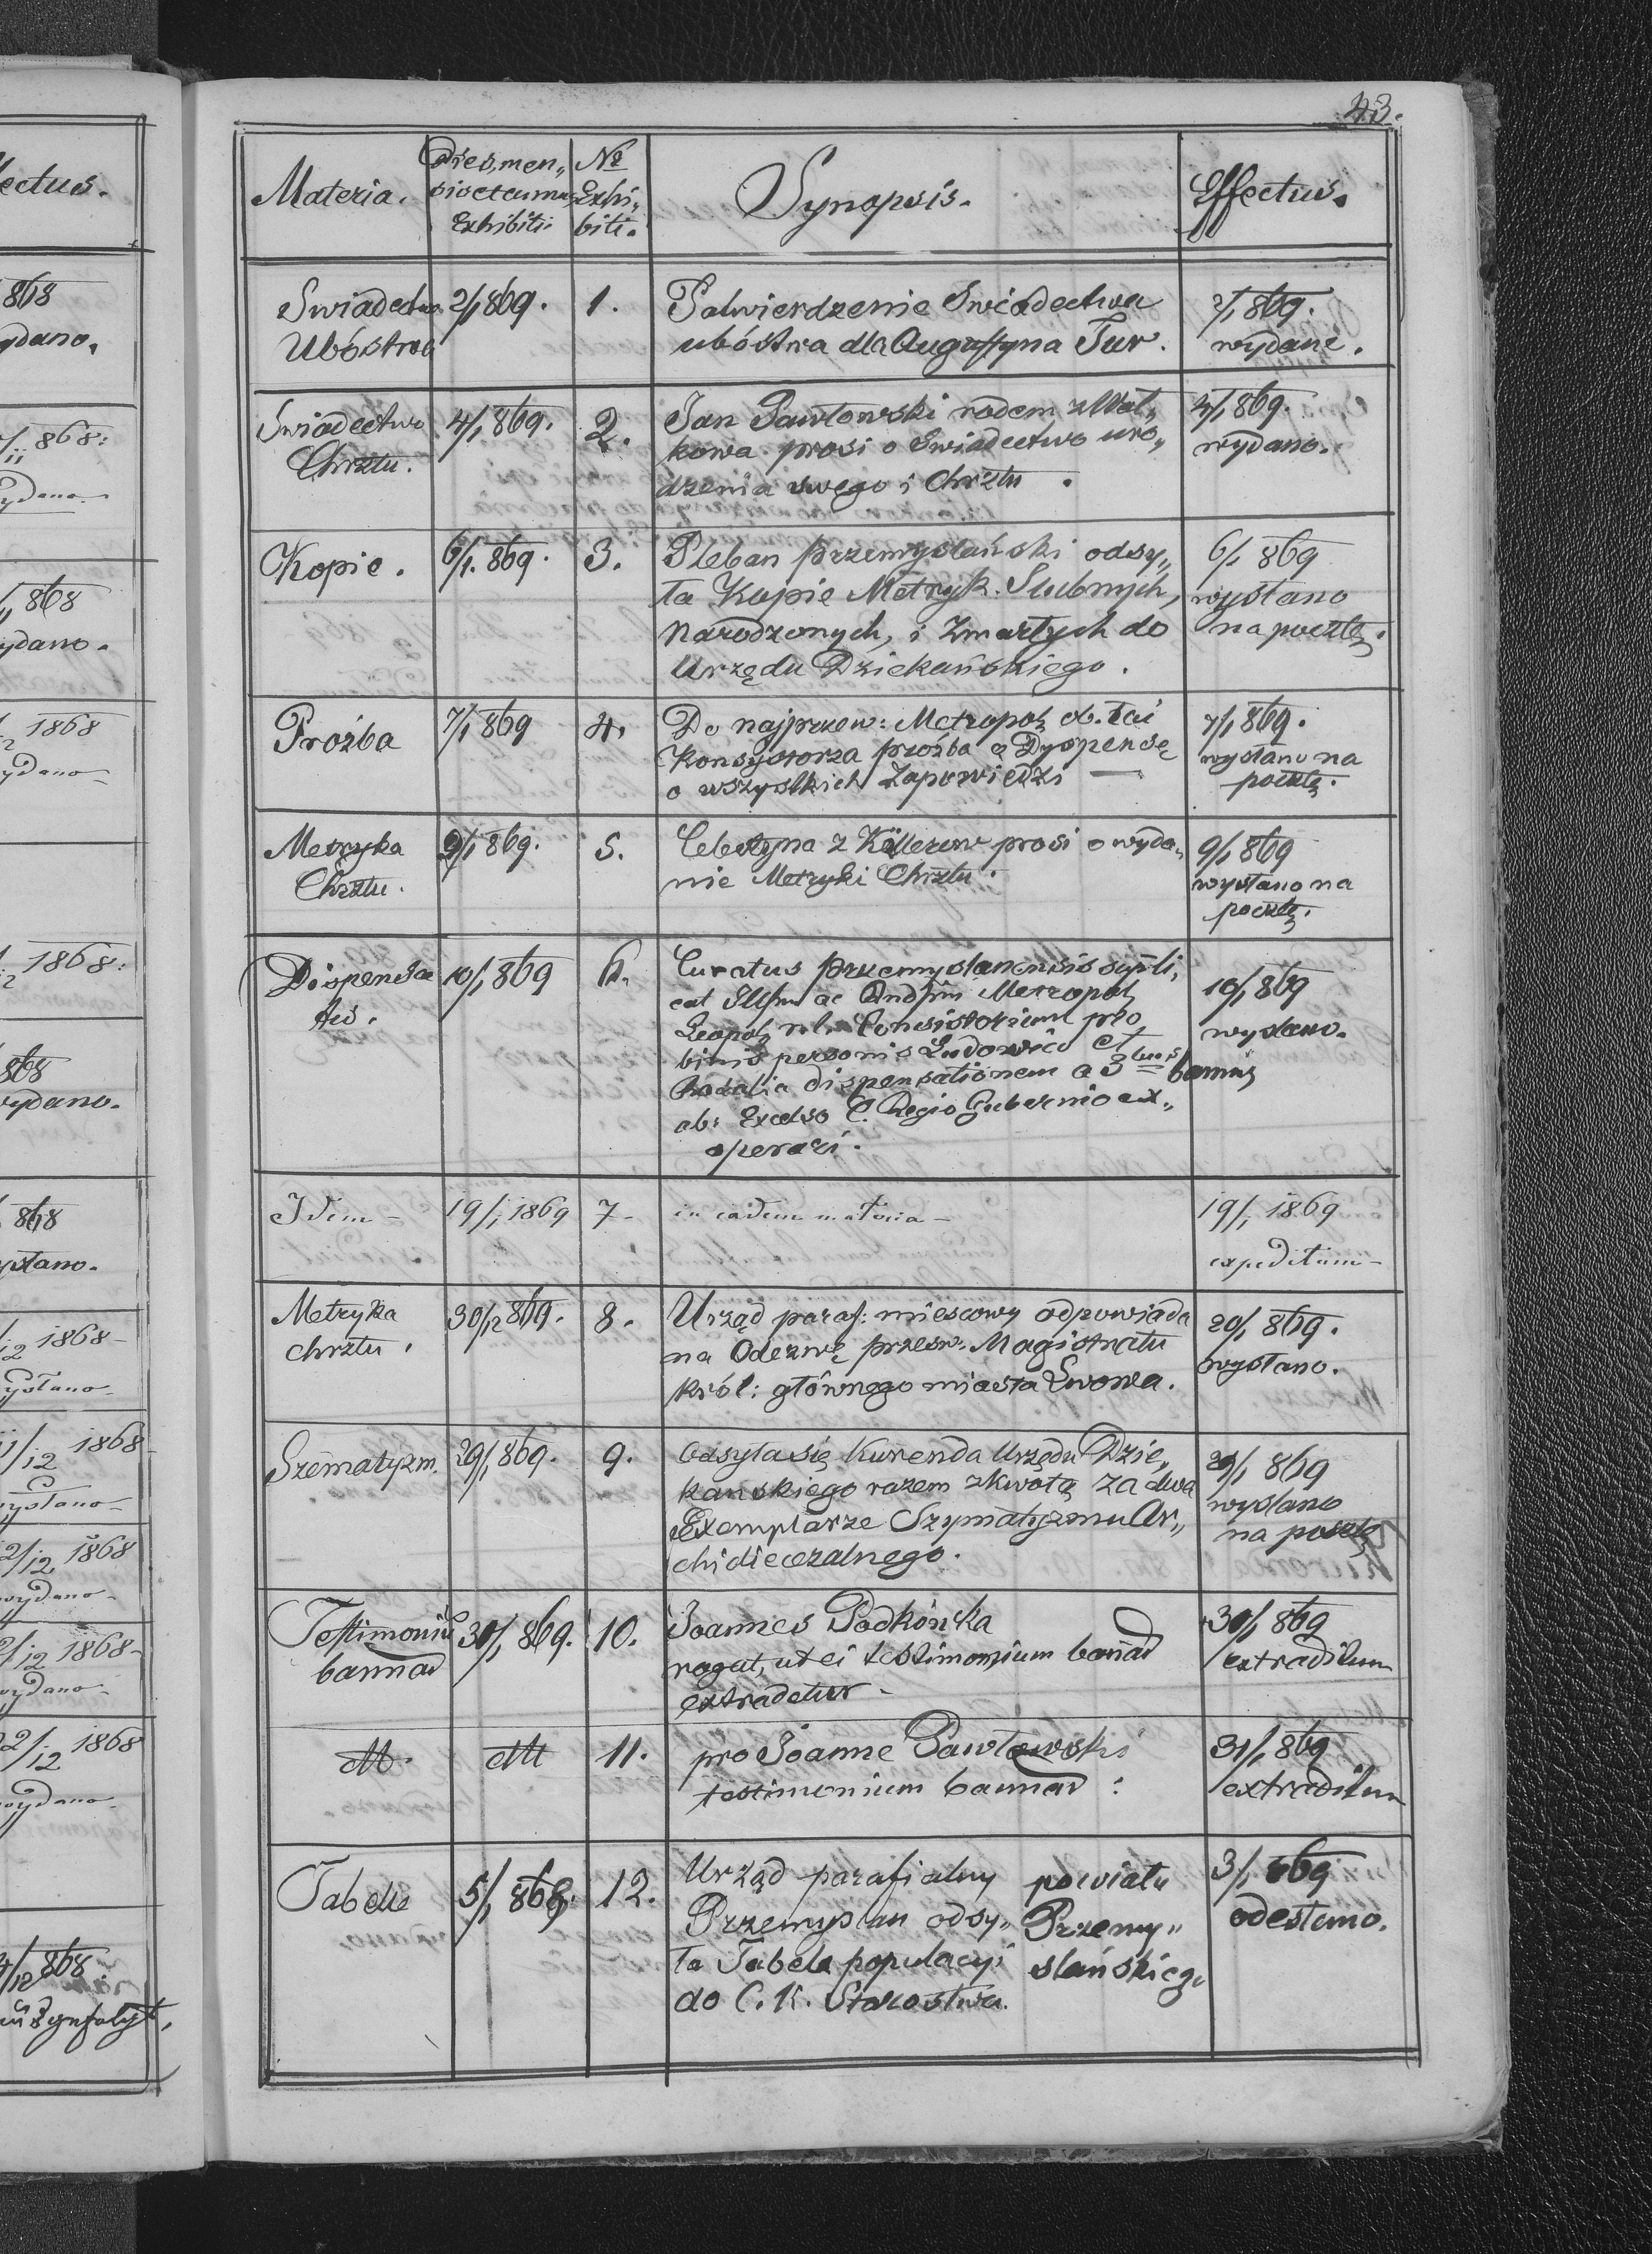 43.
Materia.
Dies, men„
sis et annus
Exhibiti
№
Exhi„
biti.
Synopsis.
Effectus.
Swiadectwo
Ubóstwa
2/1 869.
1.
Potwierdzenie Swiadectwa
ubóstwa dla Augustyna Tur.
2/1 869.
wydane.
Swiadectwo
Chrztu.
4/1 869.
2.
Jan Pawłowski rodem z Woł„
kowa prosi o Swiadectwo uro„
dzenia swego i Chrztu.
4/1 869.
wydano.
Kopie.
6/1. 869.
3.
Pleban przemyslański odsy„
ła Kopie Metryk Slubnych,
Narodzonych, i Zmarłych do
Urzędu Dziekańskiego.
6/1 869
wysłano
na pocztę.
Prośba
7/1 869
4.
Do najprzew: Metropol. ob. łać
Konsystorza prośba o Dyspensę
o wszystkich Zapowiedzi —
7/1 869.
wysłano na
pocztę.
Metryka
Chrztu.
9/1 869.
5.
Celestyna z Köllerow prosi o wyda„
nie Metryki Chrztu.
9/1 869
wysłano na
pocztę.
Dispensa
tio.
10/1 869
6.
Curatus przemyslanensis suppli„
cat Illsm ac Rndssm Metropol.
Leopol. r. l. Consistorium pro
binis personis Ludovico et
Rosalia dispensationem a 3bus bannis
ab Excelso C. Regio Gubernio ex„
operari.
10/1 869
wysłano.
Idem -
19/1 1869
7 -
in eadem materia -
19/1 1869
expeditum -
Metryka
chrztu.
30/12 869.
8.
Urząd paraf: miescowy odpowiada
na Odezwę przesw. Magistratu
król: głównego miasta Lwowa.
20/1 869.
wysłano.
Szematyzm.
29/1 869.
9.
Odsyła się Kurenda Urzędu Dzie„
kańskiego razem z kwotą za dwa
Exemplarze Szymatyzmu Ar„
chidiecezalnego.
29/1 869
wysłano
na pocztę
Testimoniu
bannor
30/1 869.
10.
Joannes Podkówka
rogat, ut ei testimonium bannor
extradetur -
30/1 869
extraditum
dtt.
dtt
11.
pro Joanne Pawłowski
testimonium bannor:
31/1 869
extraditum
Tabelle
5/1 869.
12.
Urząd parafialny
Przemyslan odsy„
ła Tabele populacyi
do C. K. Starostwa.
powiatu
Przemy„
slańskiego
3/1 869
odesłano.
ectus.
868
ydano.
/11 868:
ydano -
/11 868
ydano.
1868
ydano -
1868:
868
ydano.
868
ysłano.
/12 1868 -
ysłano -
11/12 1868
wysłano -
12/12 1868
wydano -
/12 1868 -
wydano -
22/12 1868
wydano -
/12 868.